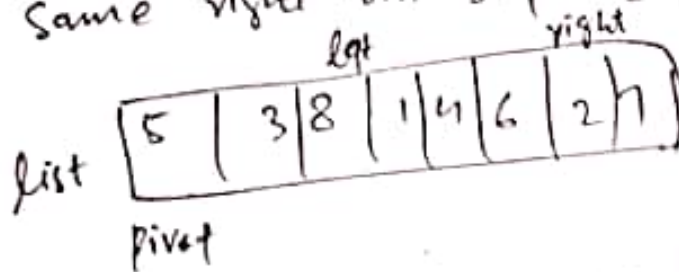 Same right
left right
list 5 | 3 | 8 | 1 | 4 | 6 | 2 | 7
pivot